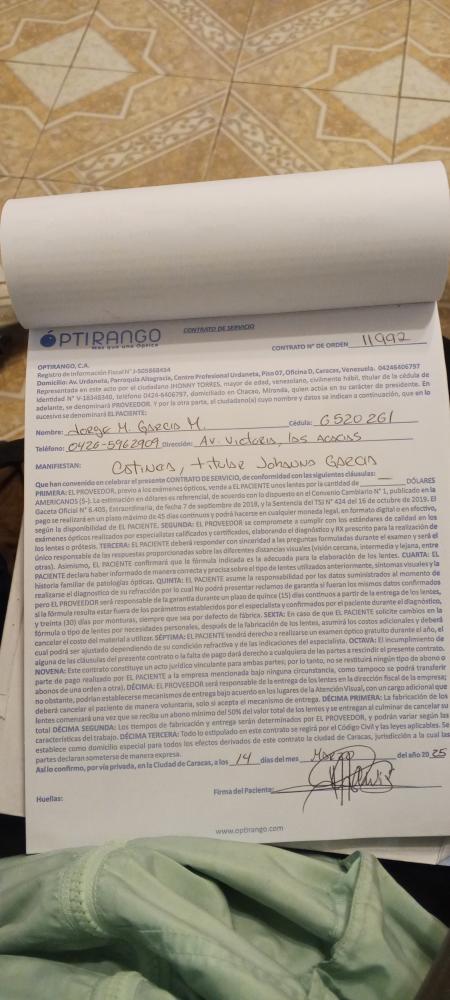 ÓPTIRANGO
Más que una Óptica
CONTRATO DE SERVICIO
CONTRATO N° DE ORDEN 11992
OPTIRANGO, C.A.
Registro de Información Fiscal N° J-505868434
Domicilio: Av. Urdaneta, Parroquia Altagracia, Centro Profesional Urdaneta, Piso 07, Oficina D, Caracas, Venezuela. 04246406797
Representada en este acto por el ciudadano JHONNY TORRES, mayor de edad, venezolano, civilmente hábil, titular de la cédula de
Identidad N° V-18348340, teléfono 0424-6406797, domiciliado en Chacao, Miranda, quien actúa en su carácter de presidente. En
adelante, se denominará PROVEEDOR. Y por la otra parte, el ciudadano(a) cuyo nombre y datos se indican a continuación, que en lo
sucesivo se denominará EL PACIENTE:
Nombre: Jorge M. Garcia M. Cédula: 6520261
Teléfono: 0426-5962909 Dirección: Av. Victoria, las Acacias
MANIFIESTAN: titular Johanna Garcia
Que han convenido en celebrar el presente CONTRATO DE SERVICIO, de conformidad con las siguientes cláusulas:
PRIMERA: EL PROVEEDOR, previo a los exámenes ópticos, vende a EL PACIENTE unos lentes por la cantidad de DÓLARES
AMERICANOS ($-). La estimación en dólares es referencial, de acuerdo con lo dispuesto en el Convenio Cambiario N° 1, publicado en la
Gaceta Oficial N° 6.405, Extraordinaria, de fecha 7 de septiembre de 2018, y la Sentencia del TSJ N° 424 del 16 de octubre de 2019. El
pago se realizará en un plazo máximo de 45 días continuos y podrá hacerse en cualquier moneda legal, en formato digital o en efectivo,
según la disponibilidad de EL PACIENTE. SEGUNDA: EL PROVEEDOR se compromete a cumplir con los estándares de calidad en los
exámenes ópticos realizados por especialistas calificados y certificados, elaborando el diagnóstico y RX prescrito para la realización de
los lentes o prótesis. TERCERA: EL PACIENTE deberá responder con sinceridad a las preguntas formuladas durante el examen y será el
único responsable de las respuestas proporcionadas sobre las diferentes distancias visuales (visión cercana, intermedia y lejana, entre
otras). Asimismo, EL PACIENTE confirmará que la fórmula indicada es la adecuada para la elaboración de los lentes. CUARTA: EL
PACIENTE declara haber informado de manera correcta y precisa sobre el tipo de lentes utilizados anteriormente, síntomas visuales y la
historia familiar de patologías ópticas. QUINTA: EL PACIENTE asume la responsabilidad por los datos suministrados al momento de
realizarse el diagnostico de su refracción por lo cual No podrá presentar reclamo de garantía si fueran los mismos datos confirmados
pero EL PROVEEDOR será responsable de la garantía durante un plazo de quince (15) días continuos a partir de la entrega de los lentes,
y treinta (30) días por monturas, siempre que sea por defecto de fábrica. SEXTA: En caso de que EL PACIENTE solicite cambios en la
fórmula o tipo de lentes por necesidades personales, después de la fabricación de los lentes, asumirá los costos adicionales y deberá
cancelar el costo del material a utilizar. SÉPTIMA: EL PACIENTE tendrá derecho a realizarse un examen óptico gratuito durante el año, el
cual podrá ser ajustado dependiendo de su condición refractiva y de las indicaciones del especialista. OCTAVA: El incumplimiento de
alguna de las cláusulas del presente contrato o la falta de pago dará derecho a cualquiera de las partes a rescindir el presente contrato.
NOVENA: Este contrato constituye un acto jurídico vinculante para ambas partes; por lo tanto, no se restituirá ningún tipo de abono o
parte de pago realizado por EL PACIENTE a la empresa mencionada bajo ninguna circunstancia, como tampoco se podrá transferir
abonos de una orden a otra). DÉCIMA: EL PROVEEDOR será responsable de la entrega de los lentes en la dirección fiscal de la empresa;
no obstante, podrían establecerse mecanismos de entrega bajo acuerdo en los lugares de la Atención Visual, con un cargo adicional que
deberá cancelar el paciente de manera voluntaria, solo si acepta el mecanismo de entrega. DÉCIMA PRIMERA: La fabricación de los
lentes comenzará una vez que se reciba un abono mínimo del 50% del valor total de los lentes y se entregan al culminar de cancelar su
total DÉCIMA SEGUNDA: Los tiempos de fabricación y entrega serán determinados por EL PROVEEDOR, y podrán variar según las
características del trabajo. DÉCIMA TERCERA: Todo lo estipulado en este contrato se regirá por el Código Civil y las leyes aplicables. Se
establece como domicilio especial para todos los efectos derivados de este contrato la ciudad de Caracas, jurisdicción a la cual las
partes declaran someterse de manera expresa.
Así lo confirmo, por vía privada, en la Ciudad de Caracas, a los 14 días del mes Marzo del año 2025
Huellas:
Firma del Paciente:
www.optirango.com